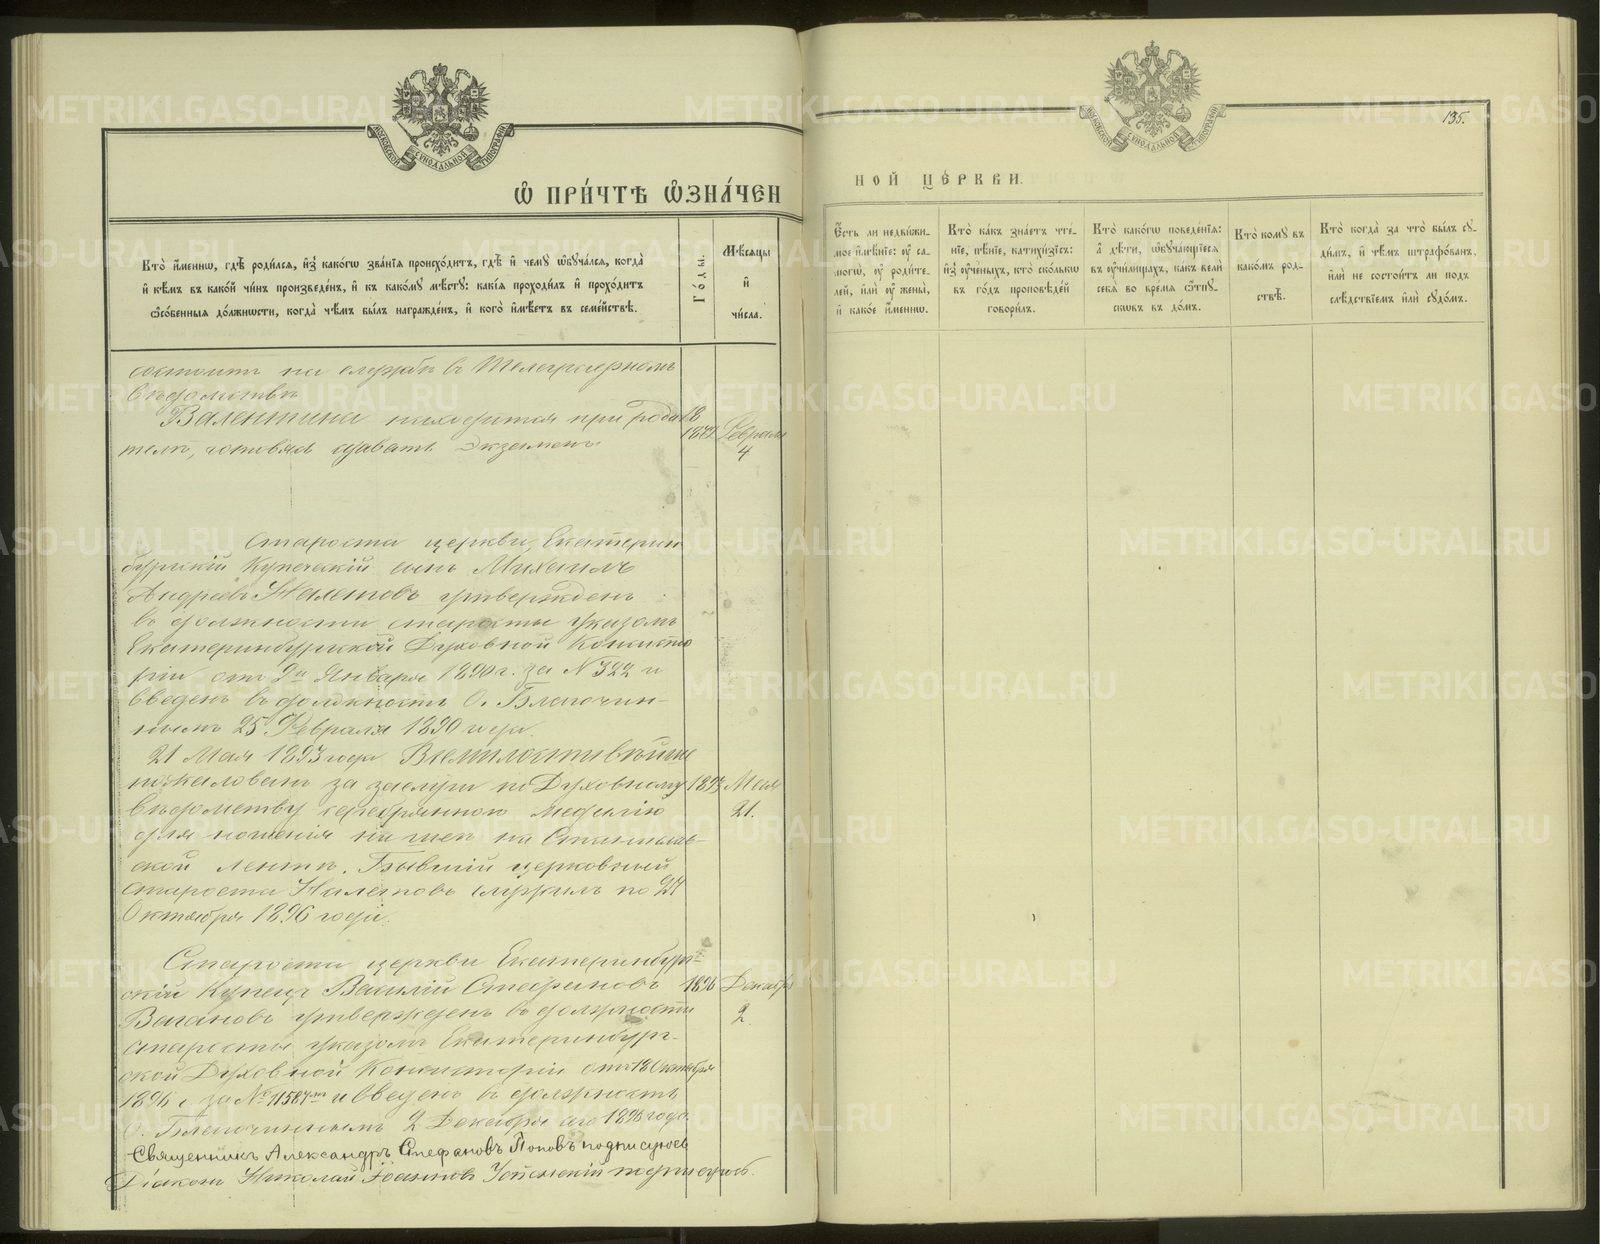 МОСКОВСКОЙ СѴНОДАЛЬНОЙ ТИПОГРАФІИ
МОСКОВСКОЙ СѴНОДАЛЬНОЙ ТИПОГРАФІИ
135.
Ѡ ПРИ́ЧТѢ Ѡ҆ЗНА́ЧЕННОЙ ЦЕ́РКВИ.
Кто̀ и҆́менны, гдѣ̀ роди́лсѧ, и҆з̾ како́гѡ зва́нїѧ происхо́дитъ, гдѣ̀ и҆ чемꙋ̀ ѡ҆бꙋча́лсѧ, когда̀
и҆ кѣ́мъ въ како́й чи́нъ произведе́нъ, и҆ къ како́мꙋ мѣ́стꙋ: какі́ѧ проходи́лъ и҆ прохо́дитъ
ѻ҆со́бенныѧ до́лжности, когда̀ чѣ́мъ бы́лъ награжде́нъ, и҆ кого̀ и҆мѣ́етъ въ семе́йствѣ.
Го́ды.
Мѣ́сѧцы
и҆
чи́сла.
Е҆́сть ли недви́жи-
мое и҆мѣ́нїе: ᲂу҆ са-
могѡ̀, ᲂу҆ роди́те-
лей, и҆лѝ ᲂу҆ жены̀,
и҆ како́е и҆́менно.
Кто̀ ка́къ зна́етъ чте́-
нїе, пѣ́нїе, катихи́зїсъ:
и҆з̾ ᲂу҆че́ныхъ, кто̀ ско́лькѡ
въ го́дъ проповѣ́дей
говори́лъ.
Кто̀ како́гѡ поведе́нїѧ:
а҆ дѣ́ти, ѡ҆бꙋча́ющїесѧ
въ ᲂу҆чи́лищахъ, ка́къ велѝ
себѧ̀ во вре́мѧ ѿпꙋ-
сковъ въ до́мъ.
Кто̀ комꙋ̀ въ
како́мъ род-
ствѣ̀.
Кто̀ когда̀ за что̀ бы́лъ сꙋ-
ди́мъ, и҆ чѣ́мъ штрафо́ванъ,
и҆лѝ не состои́тъ ли под̾
слѣ́дствїемъ и҆лѝ сꙋдо́мъ.
состоитъ на службѣ въ Телеграфномъ
Вѣдомствѣ
Валентина находится при роди-
телѣ, готовясь сдавать Экзаменъ Февраля
4
Староста церкви, Екатерин
бургскій Купеческій сынъ Михаилъ
Андреевъ Налетовъ утвержденъ
въ должности старосты указомъ
Екатеринбургской Духовной Консисто
ріи отъ 9го Января 1890 г. за N 322 и
введенъ въ должность О. Благочин-
нымъ 25 Февраля 1890 года.
21 Мая 1893 года Всемилостивѣйше
пожалованъ за заслуги по Духовному 1893 Мая
Вѣдомству серебрянною медалію 21.
для ношенія на шеѣ на Станислав-
ской лентѣ. Бывшій церковный
староста Налетовъ служилъ по 27
Октября 1896 года.
Староста церкви Екатеринбург-
скій Купецъ Василій Стефановъ 1896 Декабря
Вагановъ утвержденъ въ должности 2
старосты указомъ Екатеринбург-
ской Духовной Консисторіи отъ 18 Октября
1896 г за № 11587мъ и введенъ въ должность
О. Благочиннымъ 2 Декабря 1896 года.
Священникъ Александръ Стефановъ Поповъ подписуюсь
Діаконъ Николай Іоанновъ Успенскій подписуюсь.
METRIKI.GASO-URAL.RU